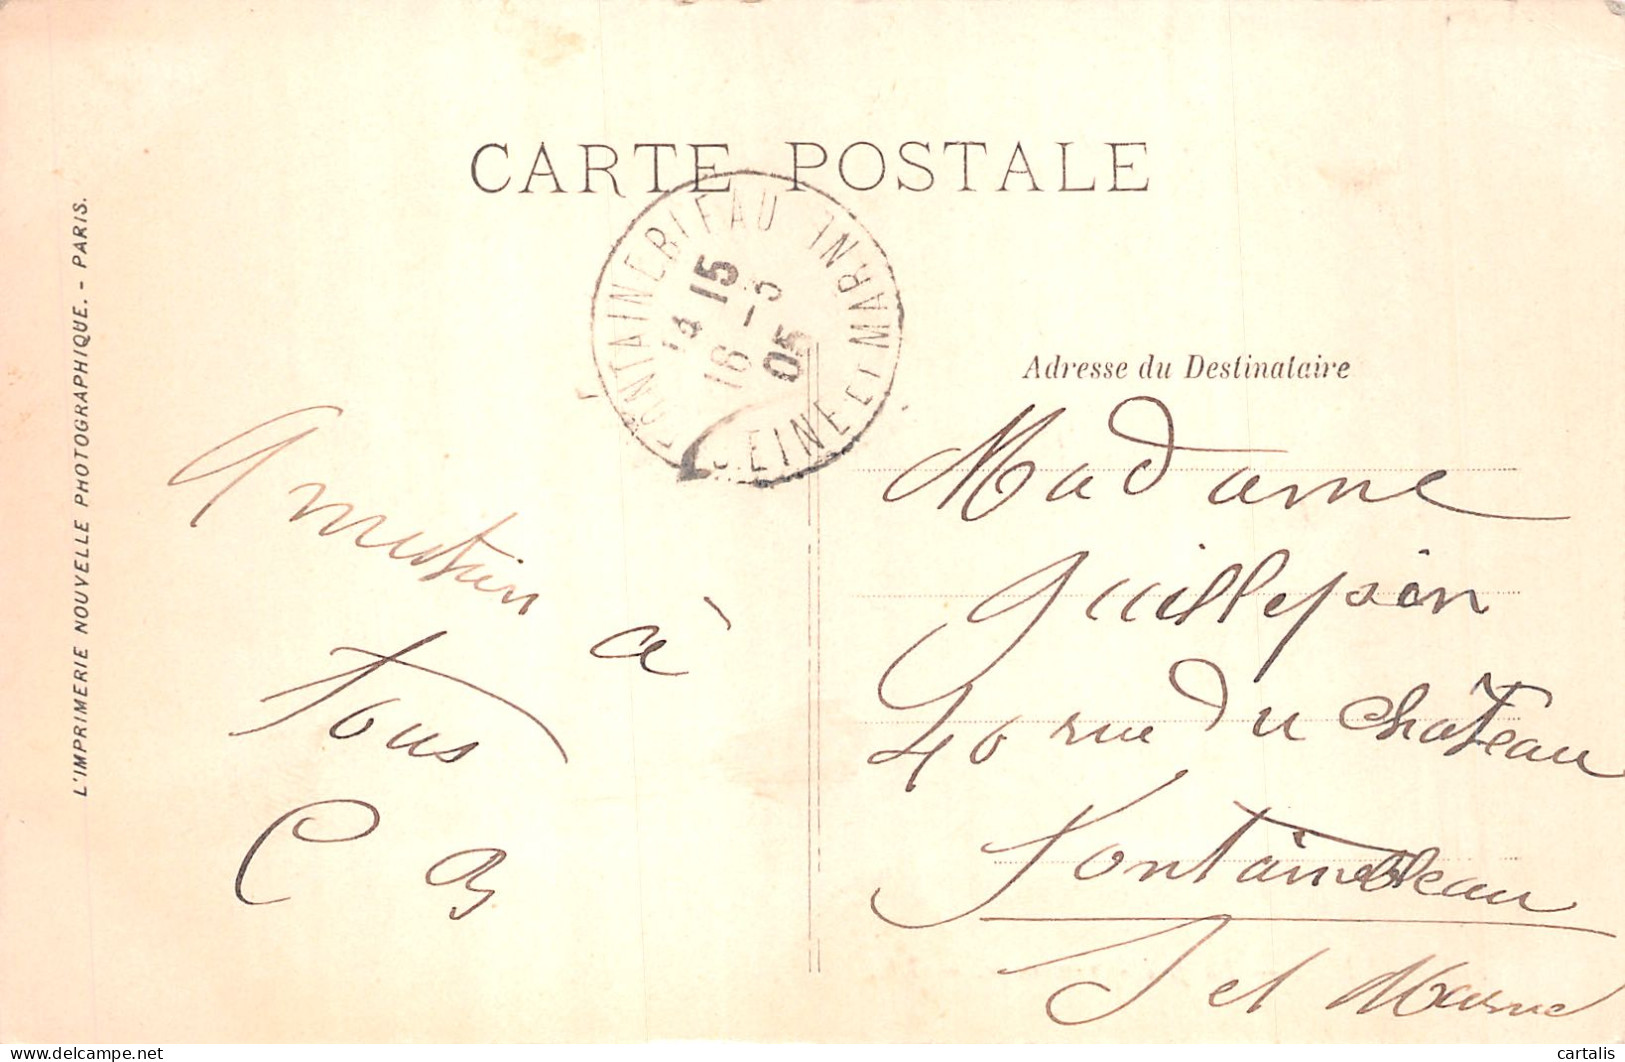 CARTE POSTALE
FONTAINEBLEAU
SEINE ET MARNE
14 15
16 - 3
05
L'IMPRIMERIE NOUVELLE PHOTOGRAPHIQUE. - PARIS.
à
tous
C B
Adresse du Destinataire
Madame
40 rue du Château
Fontainebleau
S et Marne
cartalis